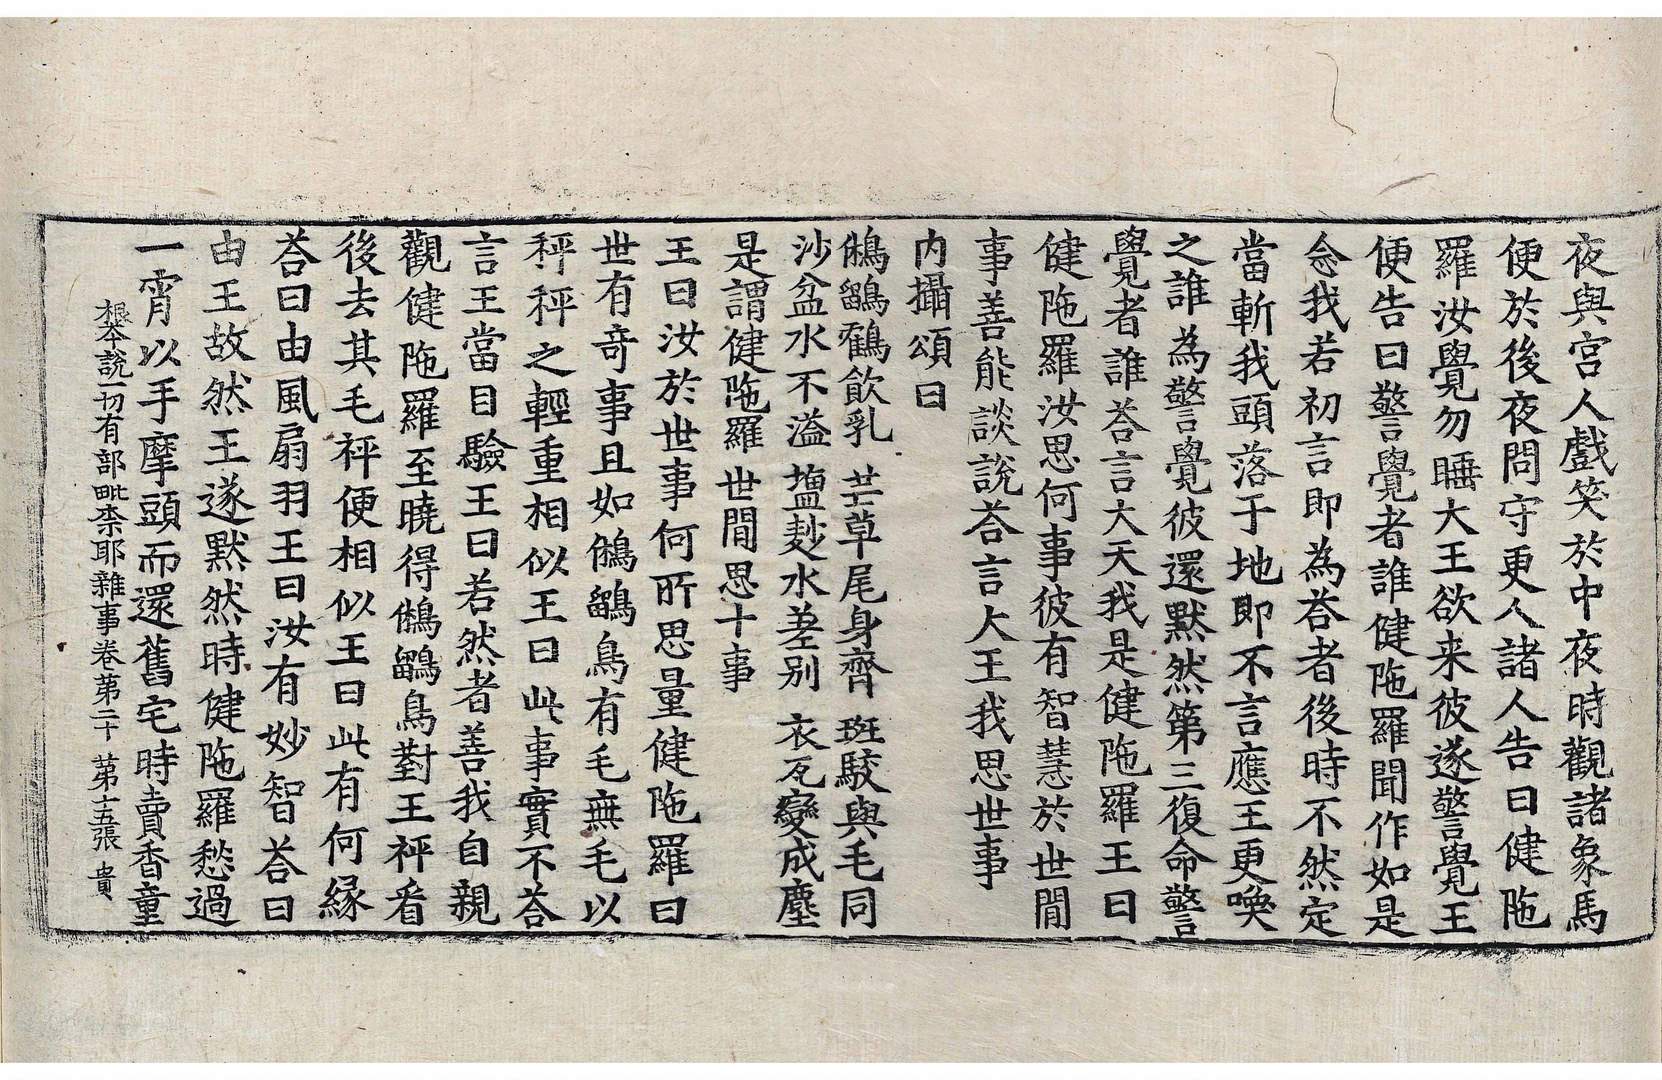 夜與宮人戲笑於中夜時觀諸象馬
便於後夜問守更人諸人告曰健陁
羅汝覺勿睡大王欲来彼遂警覺王
便告曰警覺者誰健陁羅聞作如是
念我若初言即為荅者後時不然定
當斬我頭落于地即不言應王更喚
之誰為警覺彼還默然第三復命警
覺者誰荅言大天我是健陁羅王曰
健陁羅汝思何事彼有智慧於世間
事善能談說荅言大王我思世事
内攝頌曰
鵂鶹鸖飲乳 芒草尾身齊 斑駮與毛同
沙盆水不溢 塩麨水差别 衣瓦變成塵
是謂健陁羅 世間思十事
王曰汝於世事何所思量健陁羅曰
世有奇事且如鵂鶹鳥有毛無毛以
秤秤之輕重相似王曰此事實不荅
言王當目驗王曰若然者善我自親
觀健陁羅至曉得鵂鶹鳥對王秤看
後去其毛秤便相似王曰此有何緣
荅曰由風扇羽王曰汝有妙智荅曰
由王故然王遂默然時健陁羅愁過
一宵以手摩頭而還舊宅時賣香童
根夲說一切有部毗柰耶雜事卷第二十 第十五張 貴